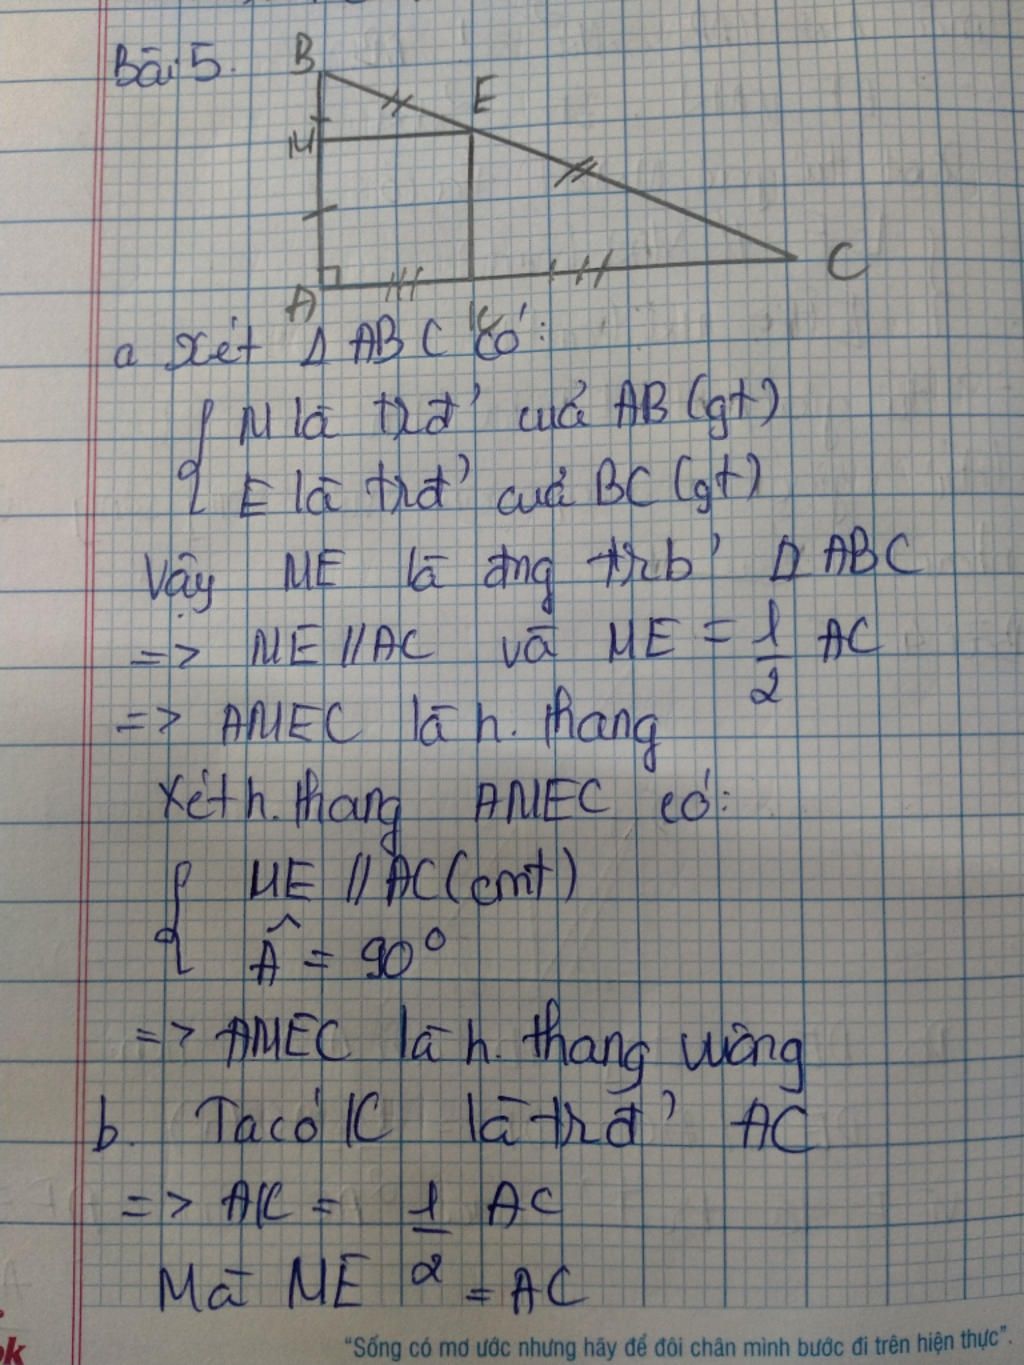 Bài 5.
B
E
M
A
K
C
a Xét Δ ABC có:
M là trđ' của AB (gt)
E là trđ' của BC (gt)
Vậy ME là đng trb' Δ ABC
=> ME // AC và ME = 1/2 AC
=> AMEC là h. thang
Xét h. thang AMEC có:
ME // AC (cmt)
Â = 90°
=> AMEC là h. thang vuông
b. Ta có K là trđ' AC
=> AK = 1/2 AC
Mà ME = AC
"Sống có mơ ước nhưng hãy để đôi chân mình bước đi trên hiện thực".